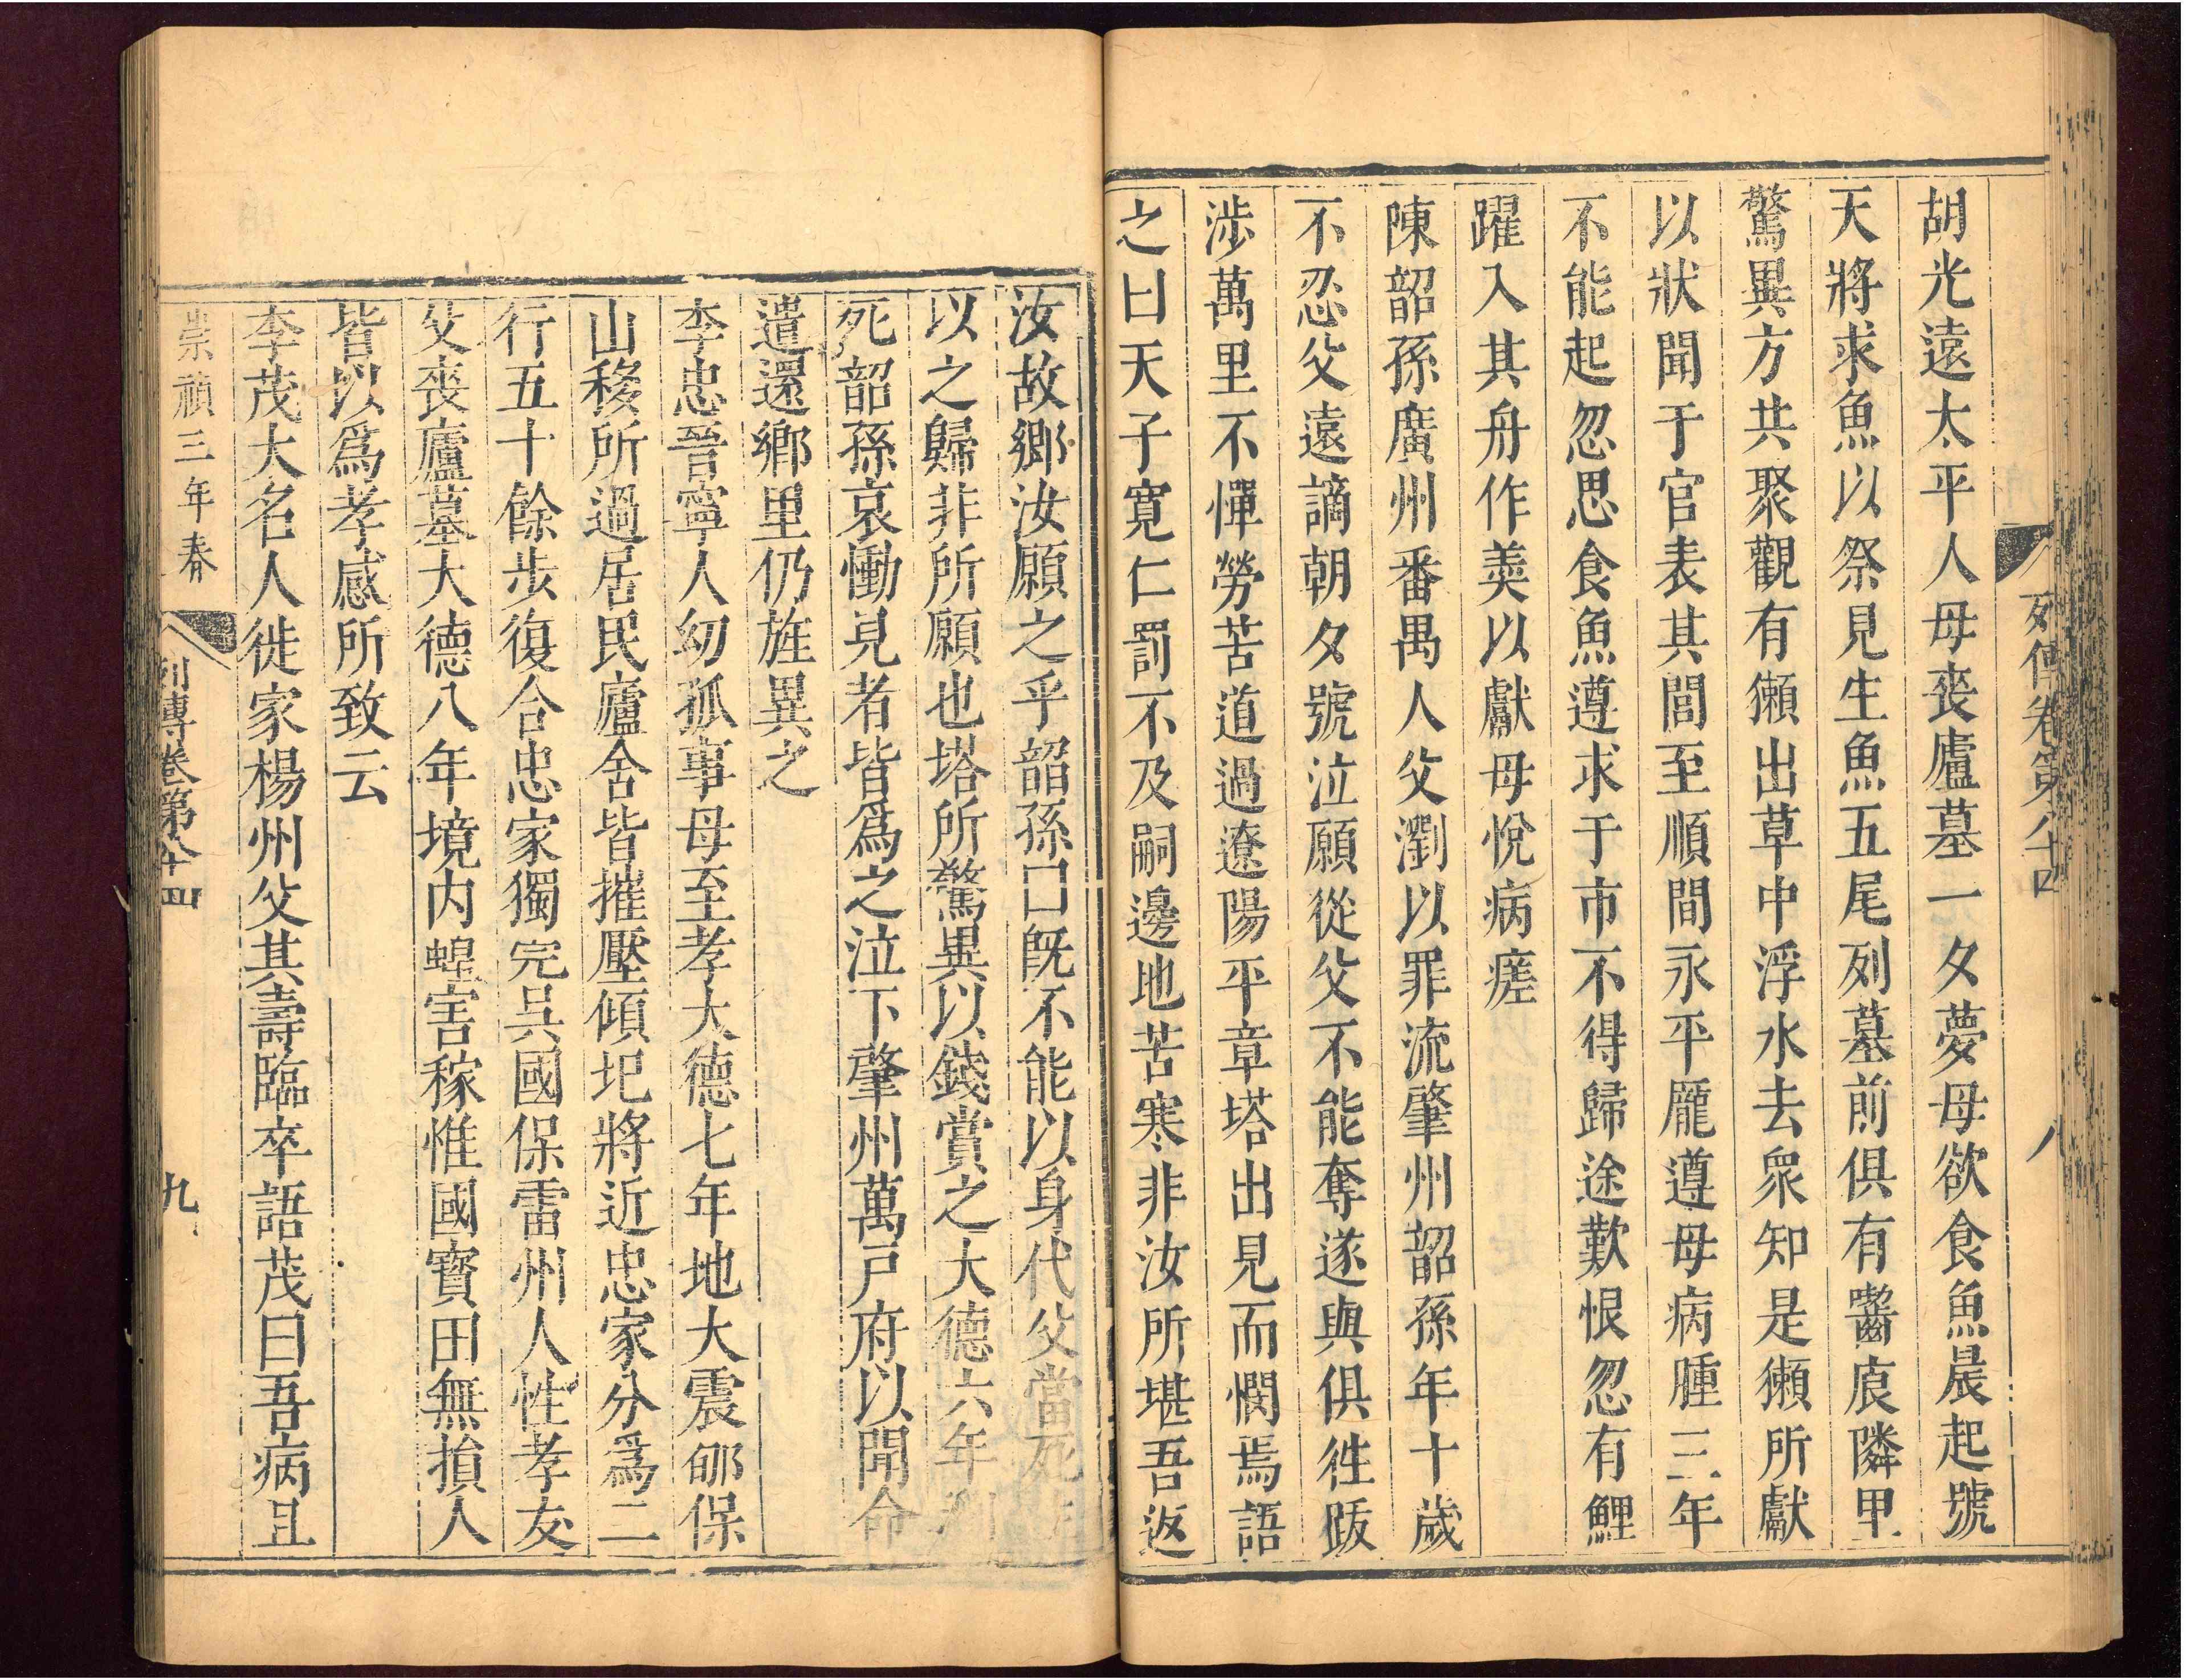 列傳卷第八十四 八
胡光遠太平人母喪廬墓一夕夢母欲食魚晨起號
天將求魚以祭見生魚五尾列墓前俱有嚙痕隣里
驚異方共聚觀有獺出草中浮水去衆知是獺所獻
以狀聞于官表其閭至順間永平龐遵母病腫三年
不能起忽思食魚遵求于市不得歸途歎恨忽有鯉
躍入其舟作羮以獻母悅病瘥
陳韶孫廣州番禺人父瀏以罪流肇州韶孫年十歲
不忍父遠謫朝夕號泣願從父不能奪遂與俱徃䟦
涉萬里不憚勞苦道過遼陽平章塔出見而憫焉語
之曰天子寬仁罰不及嗣邊地苦寒非汝所堪吾返
汝故鄉汝願之乎韶孫曰旣不能以身代父當死
以之歸非所願也塔所驚異以錢賞之大德六年
死韶孫哀慟見者皆爲之泣下肇州萬戸府以聞命
遣還鄉里仍旌異之
李忠晉寧人幼孤事母至孝大德七年地大震郇保
山移所過居民廬舍皆摧壓傾圯將近忠家分爲二
行五十餘步復合忠家獨完吳國保雷州人性孝友
父喪廬墓大德八年境内蝗害稼惟國寳田無損人
皆以爲孝感所致云
李茂大名人徙家楊州父其壽臨卒語茂曰吾病且
崇禎三年春 列傳卷第八十四 九